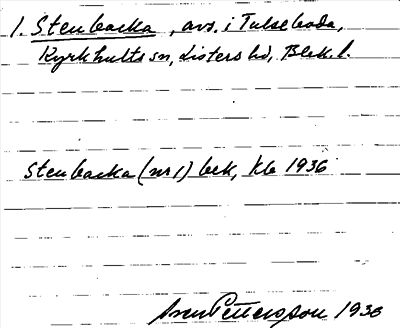 1. Stenbacka, avs. i Tulseboda,
Kyrkhults sn, Listers hd, Blek. l.
Stenbacka (nr 1) bek, Kb 1936
Pettersson 1936